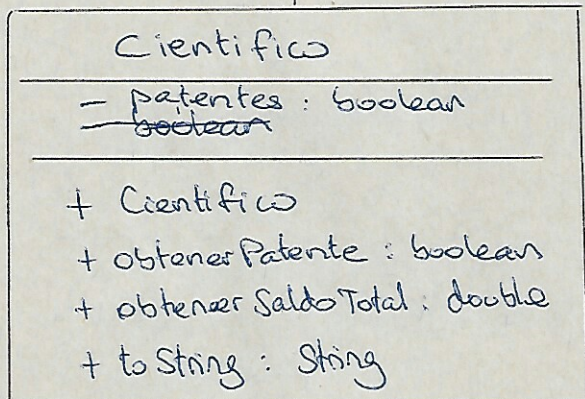 Cientifico
- patentes : boolean
- boolean
+ Cientifico
+ obtenerPatente : boolean
+ obtenerSaldoTotal : double
+ toString : String